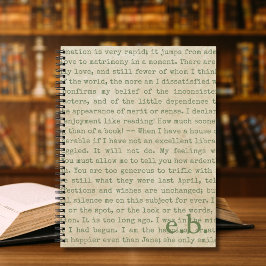 nation is very rapid; it jumps from adm
ove to matrimony in a moment. There are
ly love, and still fewer of whom I think
of the world, the more am I dissatisfied
confirms my belief of the inconsisten
acters, and of the little dependence t
he appearance of merit or sense. I declar
enjoyment like reading! How much soone
than of a book! -- When I have a house o
erable if I have not an excellent librar
ggled. It will not do. My feelings w
ou must allow me to tell you how ardent
. You are too generous to trifle with
re still what they were last April, tel
ections and wishes are unchanged; but
l silence me on this subject for ever. I
or the spot, or the look or the words,
on. It is too long ago. I was in the mi
I had begun. I am the
happier even than Jane; she only smile
e.b.